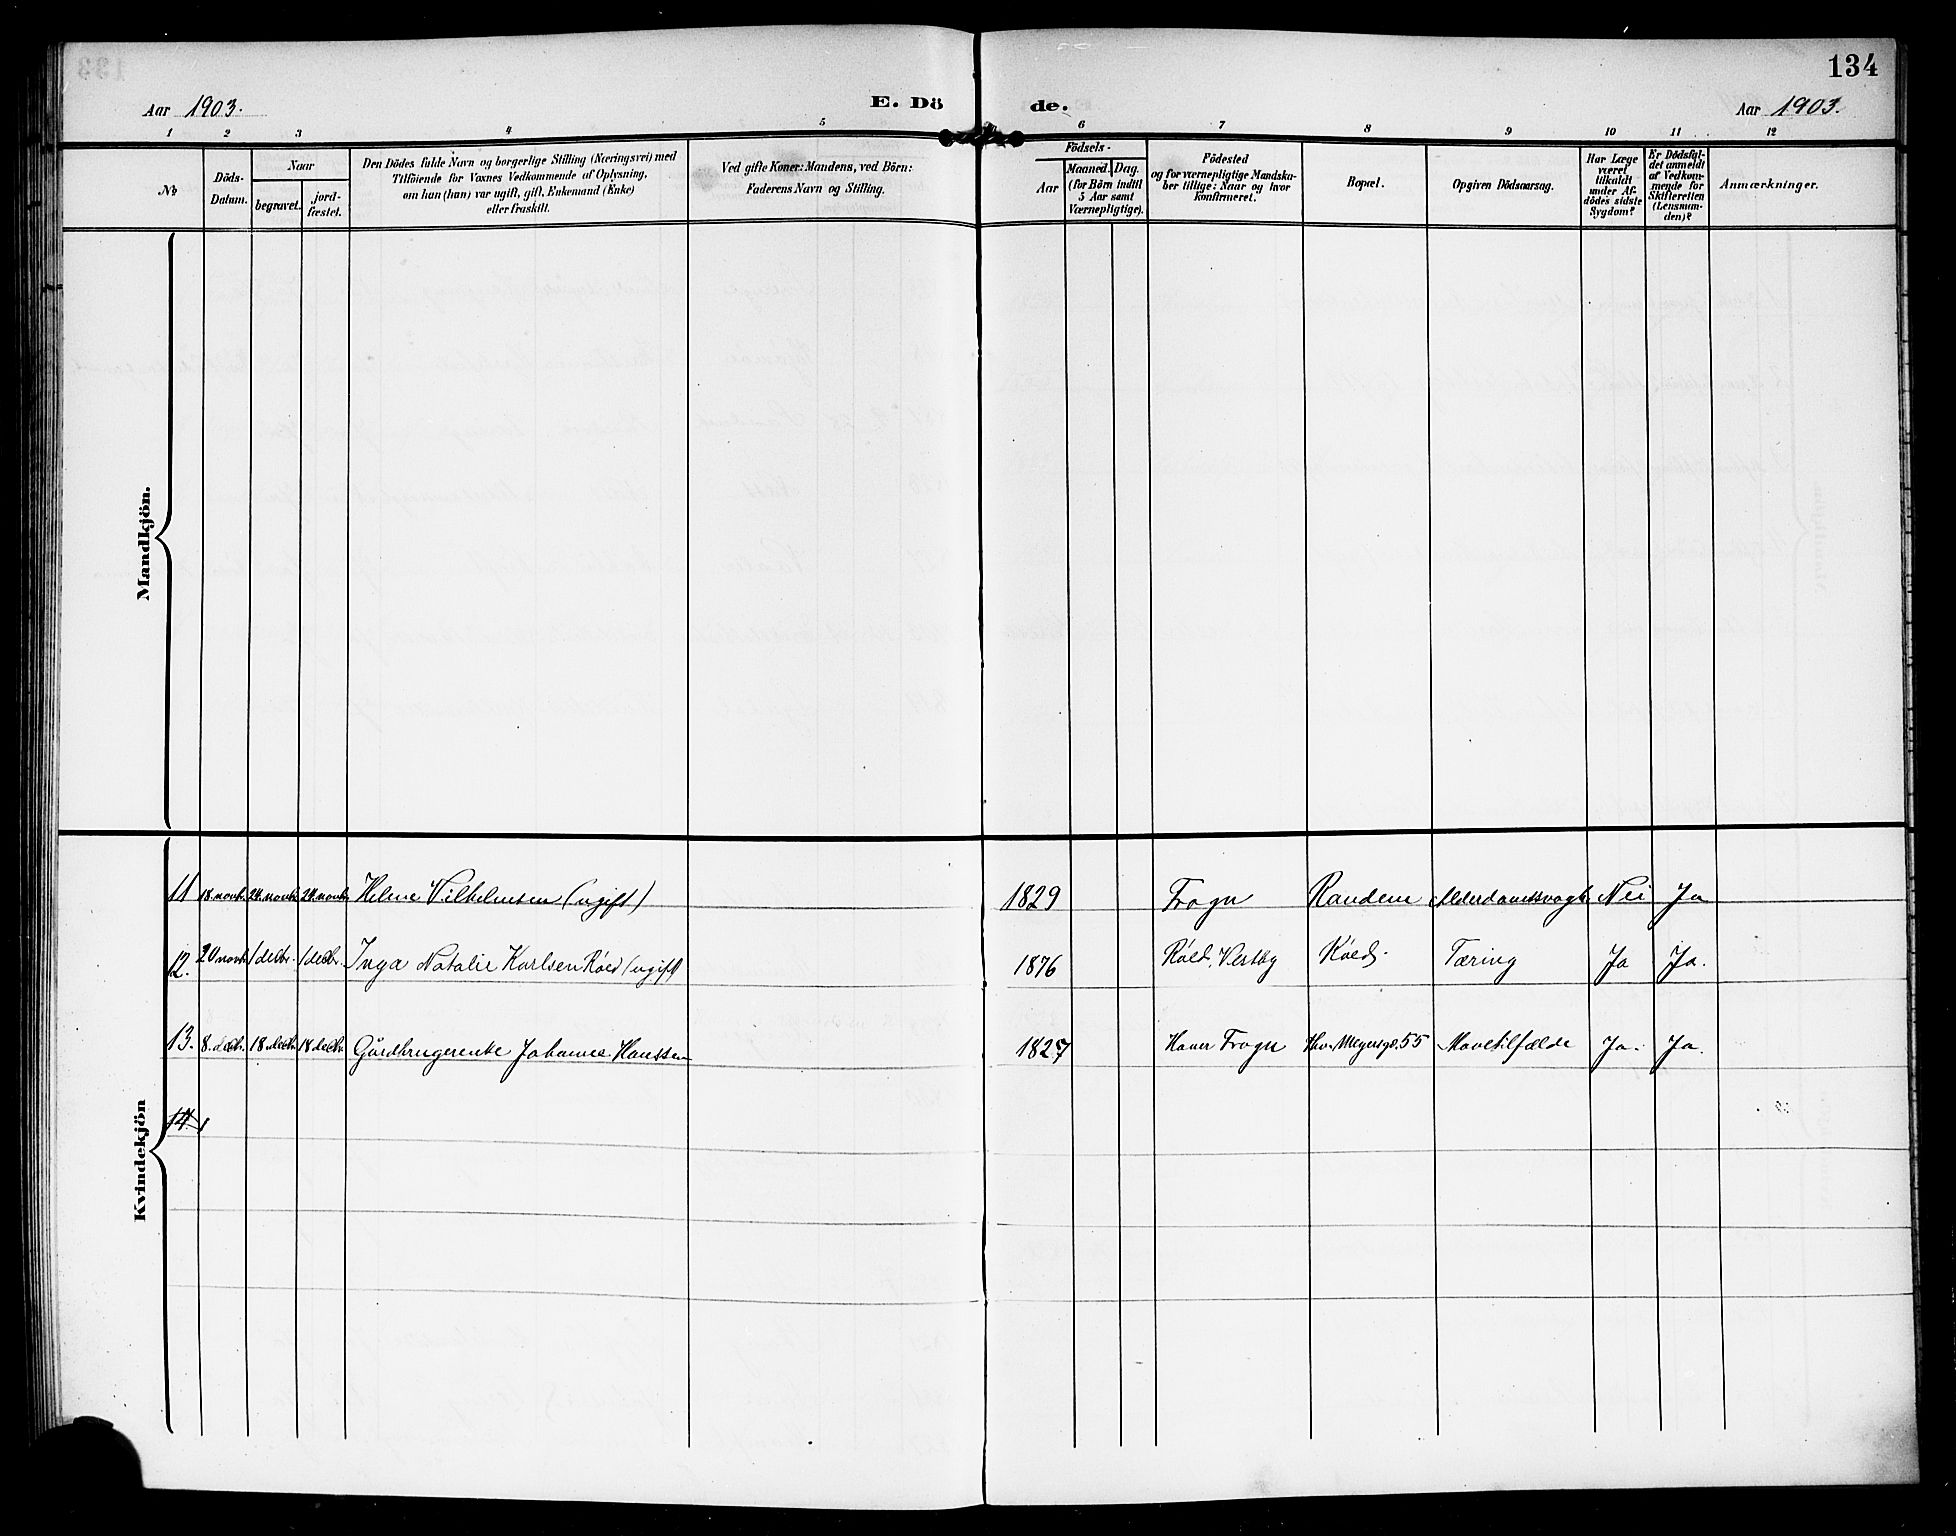 134
Aar 1903.
E. Dö de.
Aar 1903.
1 2 3 4 5 6 7 8 9 10 11 12
No
Döds-
Datum.
Naar
begravet.
jord-
fæstet.
Den Dödes fulde Navn og borgerlige Stilling (Næringsvei) med
Tilföiende for Voxnes Vedkommende af Oplysning,
om han (hun) var ugift, gift, Enkemand (Enke)
eller fraskilt.
Ved gifte Koner: Mandens, ved Börn:
Faderens Navn og Stilling.
Födsels-
Aar
Maaned.
Dag.
(for Börn indtil
5 Aar samt
Værnepligtige).
Födested
og for værnepligtige Mandska-
ber tillige: Naar og hvor
konfirmeret.
Bopæl.
Opgiven Dödsaarsag.
Har Læge
været
tilkaldt
under Af-
dödes sidste
Sygdom?
Er Dödsfal-
det anmeldt
af Vedkom-
mende for
Skifteretten
(Lensman-
den)?
Anmærkninger.
Mandkjön.
Kvindekjön
11 18. novbr. 24. novbr. 24. novbr. Helene Vilhelmsen (ugift) 1829 Frogn Randem Alderdomssvagh. Nei Ja
12. 20 novbr. 1 decbr. 1 decbr. Inga Natalie Karlsen Röed (ugift) 1876 Röed, Vestby Röed. Tæring Ja Ja.
13. 8. decbr. 18. decbr. 18 decbr. Gårdbrugerenke Johanne Hanssen 1827 Haver Frogn Thv. Meyersgt. 55 Mavetilfælde Ja. Ja.
14.